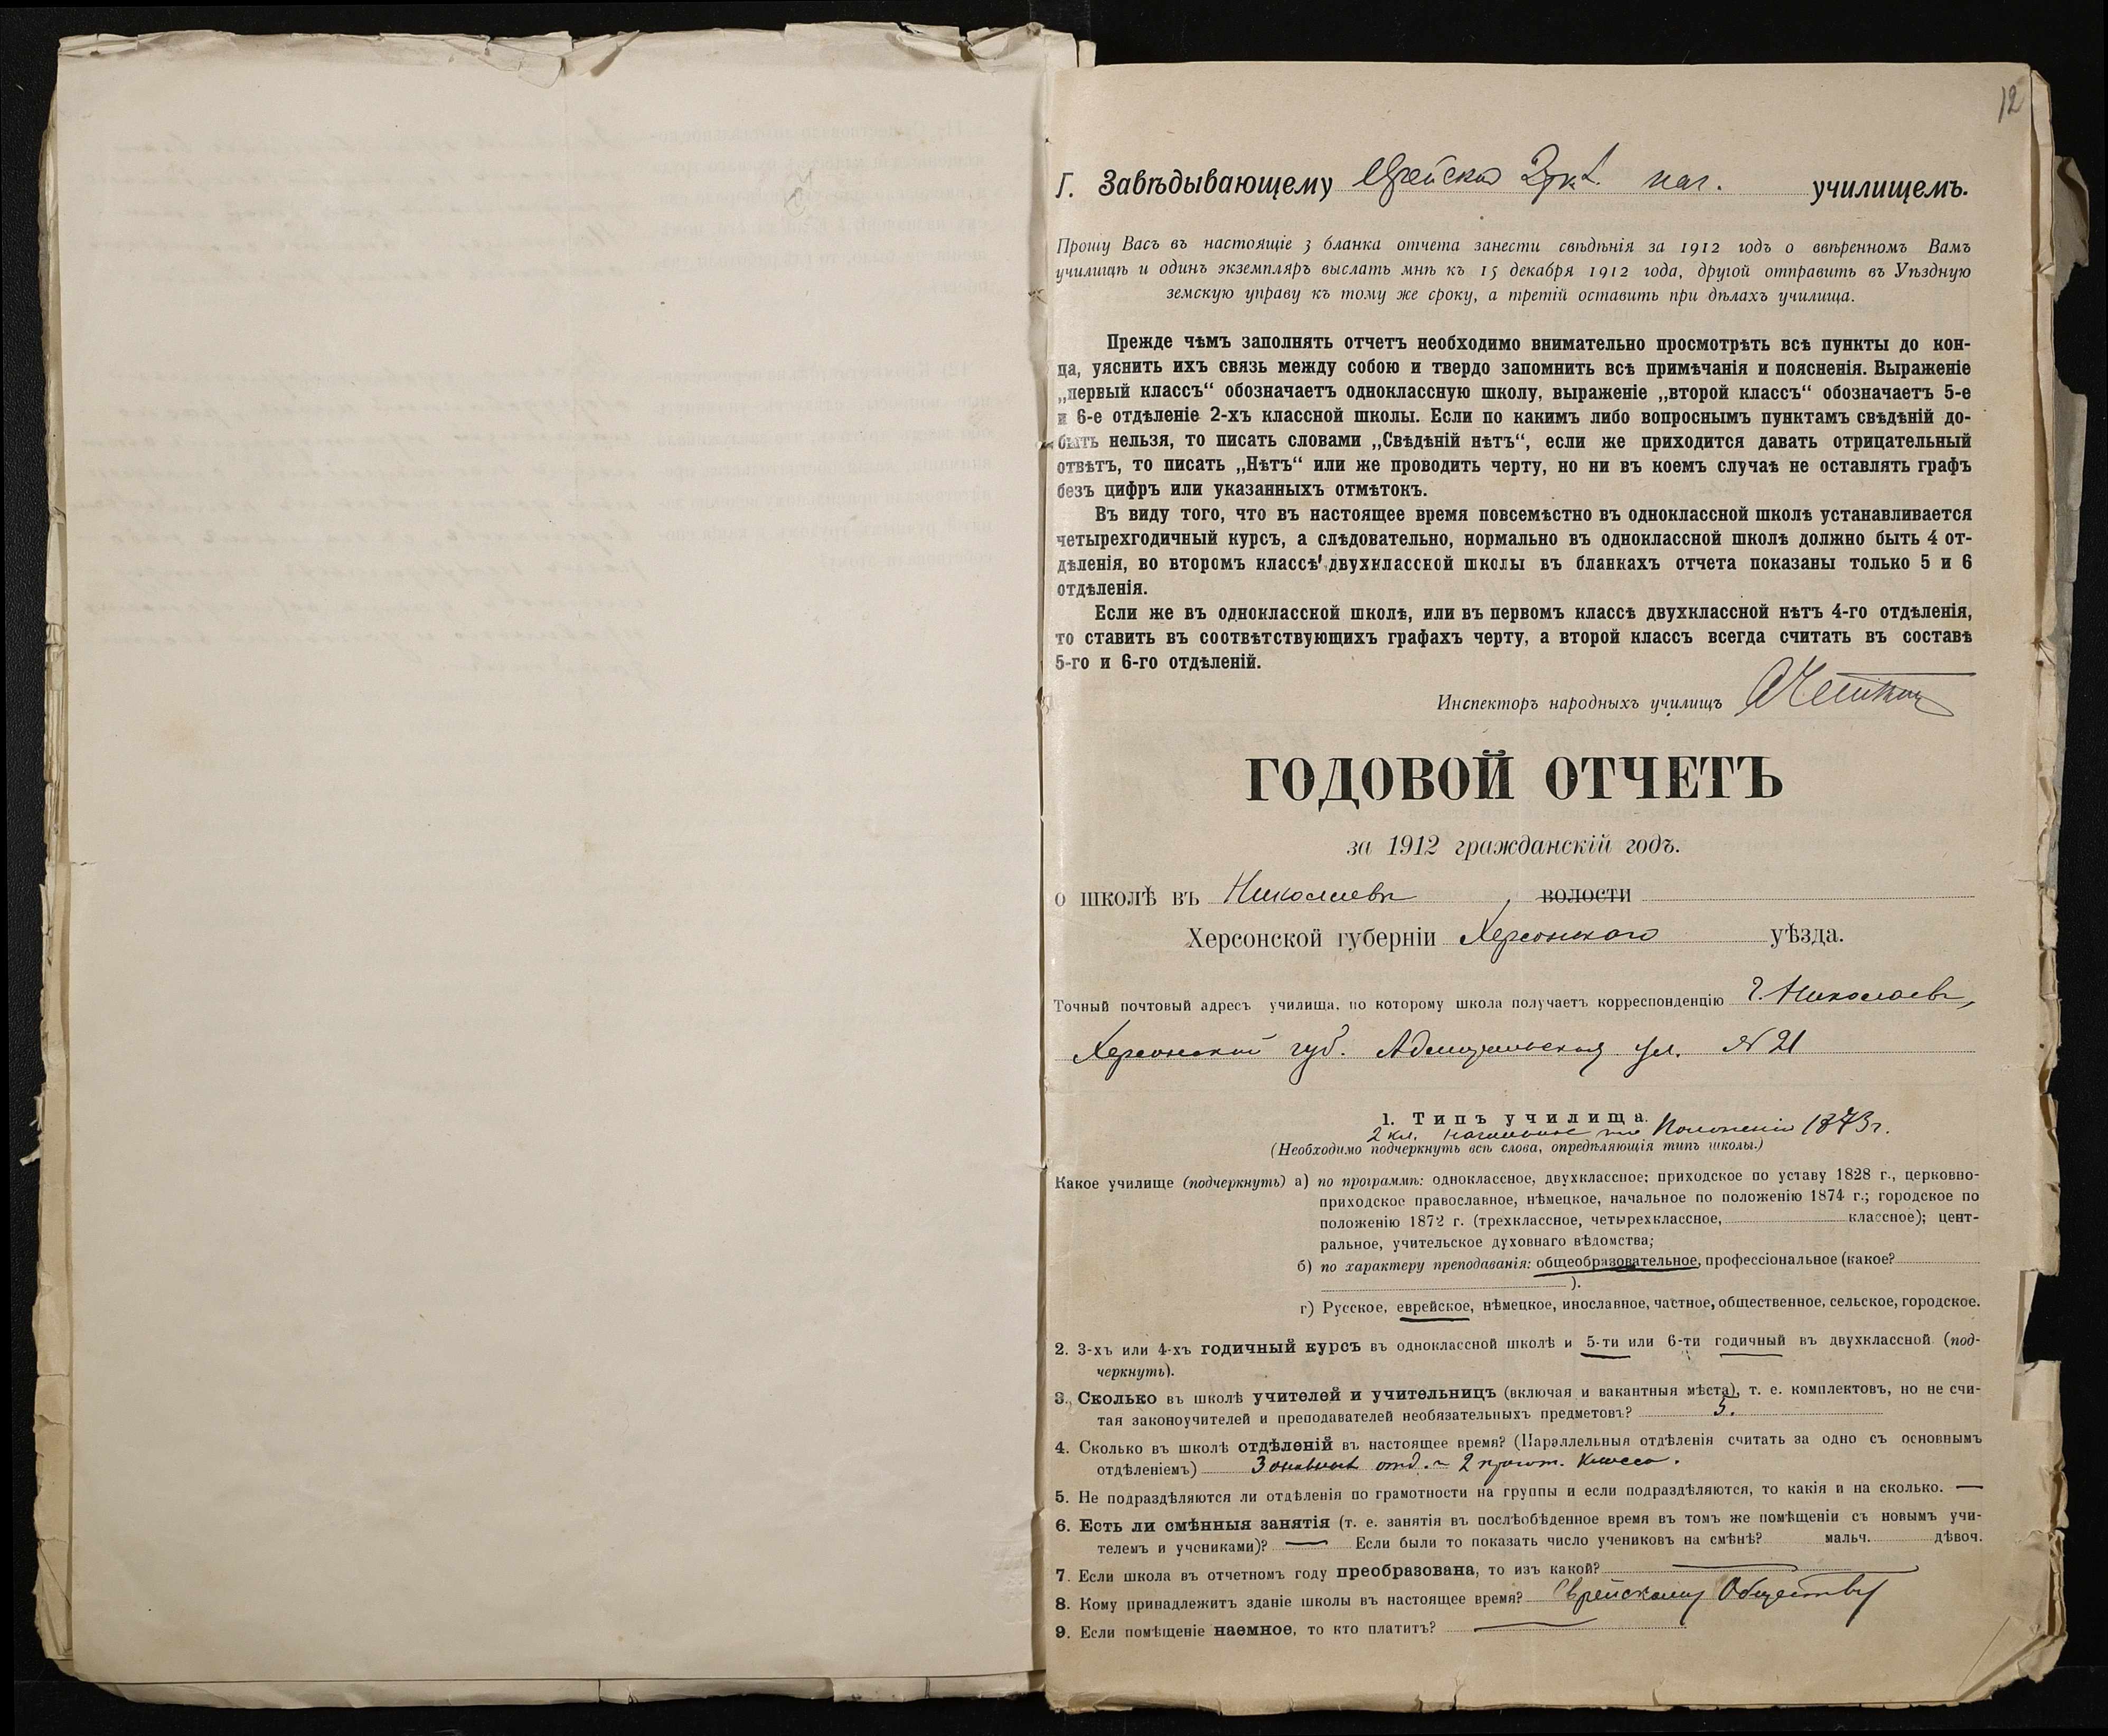 12
Г. Завѣдывающему Еврейско 2хкл. нач. училищемъ.
Прошу Васъ въ настоящіе 3 бланка отчета занести свѣдѣнія за 1912 годъ о ввѣренномъ Вамъ
училищѣ и одинъ экземпляръ выслать мнѣ къ 15 декабря 1912 года, другой отправить въ Уѣздную
земскую управу къ тому же сроку, а третій оставить при дѣлахъ училища.
Прежде чѣмъ заполнять отчетъ необходимо внимательно просмотрѣть всѣ пункты до кон-
ца, уяснить ихъ связь между собою и твердо запомнить всѣ примѣчанія и поясненія. Выраженіе
„первый классъ“ обозначаетъ одноклассную школу, выраженіе „второй классъ“ обозначаетъ 5-е
и 6-е отдѣленіе 2-хъ классной школы. Если по какимъ либо вопроснымъ пунктамъ свѣдѣній до-
быть нельзя, то писать словами „Свѣдѣній нѣтъ“, если же приходится давать отрицательный
отвѣтъ, то писать „Нѣтъ“ или же проводить черту, но ни въ коемъ случаѣ не оставлять графъ
безъ цифръ или указанныхъ отмѣтокъ.
Въ виду того, что въ настоящее время повсемѣстно въ одноклассной школѣ устанавливается
четырехгодичный курсъ, а слѣдовательно, нормально въ одноклассной школѣ должно быть 4 от-
дѣленія, во второмъ классѣ двухклассной школы въ бланкахъ отчета показаны только 5 и 6
отдѣленія.
Если же въ одноклассной школѣ, или въ первомъ классѣ двухклассной нѣтъ 4-го отдѣленія,
то ставить въ соотвѣтствующихъ графахъ черту, а второй классъ всегда считать въ составѣ
5-го и 6-го отдѣленій.
Инспекторъ народныхъ училищъ
ГОДОВОЙ ОТЧЕТЪ
за 1912 гражданскій годъ.
о школѣ въ Николаевѣ, волости
Херсонской губерніи Херсонскаго уѣзда.
Точный почтовый адресъ училища, по которому школа получаетъ корреспонденцію г. Николаевъ,
Херсонской губ. Адмиральская ул. № 21
1. Типъ училища.
2 кл. начальное по Положенію 1873 г.
(Необходимо подчеркнуть всѣ слова, опредѣляющія типъ школы.)
Какое училище (подчеркнуть) а) по программѣ: одноклассное, двухклассное; приходское по уставу 1828 г., церковно-
приходское православное, нѣмецкое, начальное по положенію 1874 г.; городское по
положенію 1872 г. (трехклассное, четырехклассное, классное); цент-
ральное, учительское духовнаго вѣдомства;
б) по характеру преподаванія: общеобразовательное, профессіональное (какое?
).
г) Русское, еврейское, нѣмецкое, инославное, частное, общественное, сельское, городское.
2. 3-хъ или 4-хъ годичный курсъ въ одноклассной школѣ и 5-ти или 6-ти годичный въ двухклассной (под-
черкнуть).
3. Сколько въ школѣ учителей и учительницъ (включая и вакантныя мѣста), т. е. комплектовъ, но не счи-
тая законоучителей и преподавателей необязательныхъ предметовъ? 5.
4. Сколько въ школѣ отдѣленій въ настоящее время? (Параллельныя отдѣленія считать за одно съ основнымъ
отдѣленіемъ) 3 основныхъ отд. и 2 класса.
5. Не подраздѣляются ли отдѣленія по грамотности на группы и если подраздѣляются, то какія и на сколько. —
6. Есть ли смѣнныя занятія (т. е. занятія въ послѣобѣденное время въ томъ же помѣщеніи съ новымъ учи-
телемъ и учениками)? — Если были то показать число учениковъ на смѣнѣ? мальч. дѣвоч.
7. Если школа въ отчетномъ году преобразована, то изъ какой? —
8. Кому принадлежитъ зданіе школы въ настоящее время? Еврейскому Обществу
9. Если помѣщеніе наемное, то кто платитъ? —